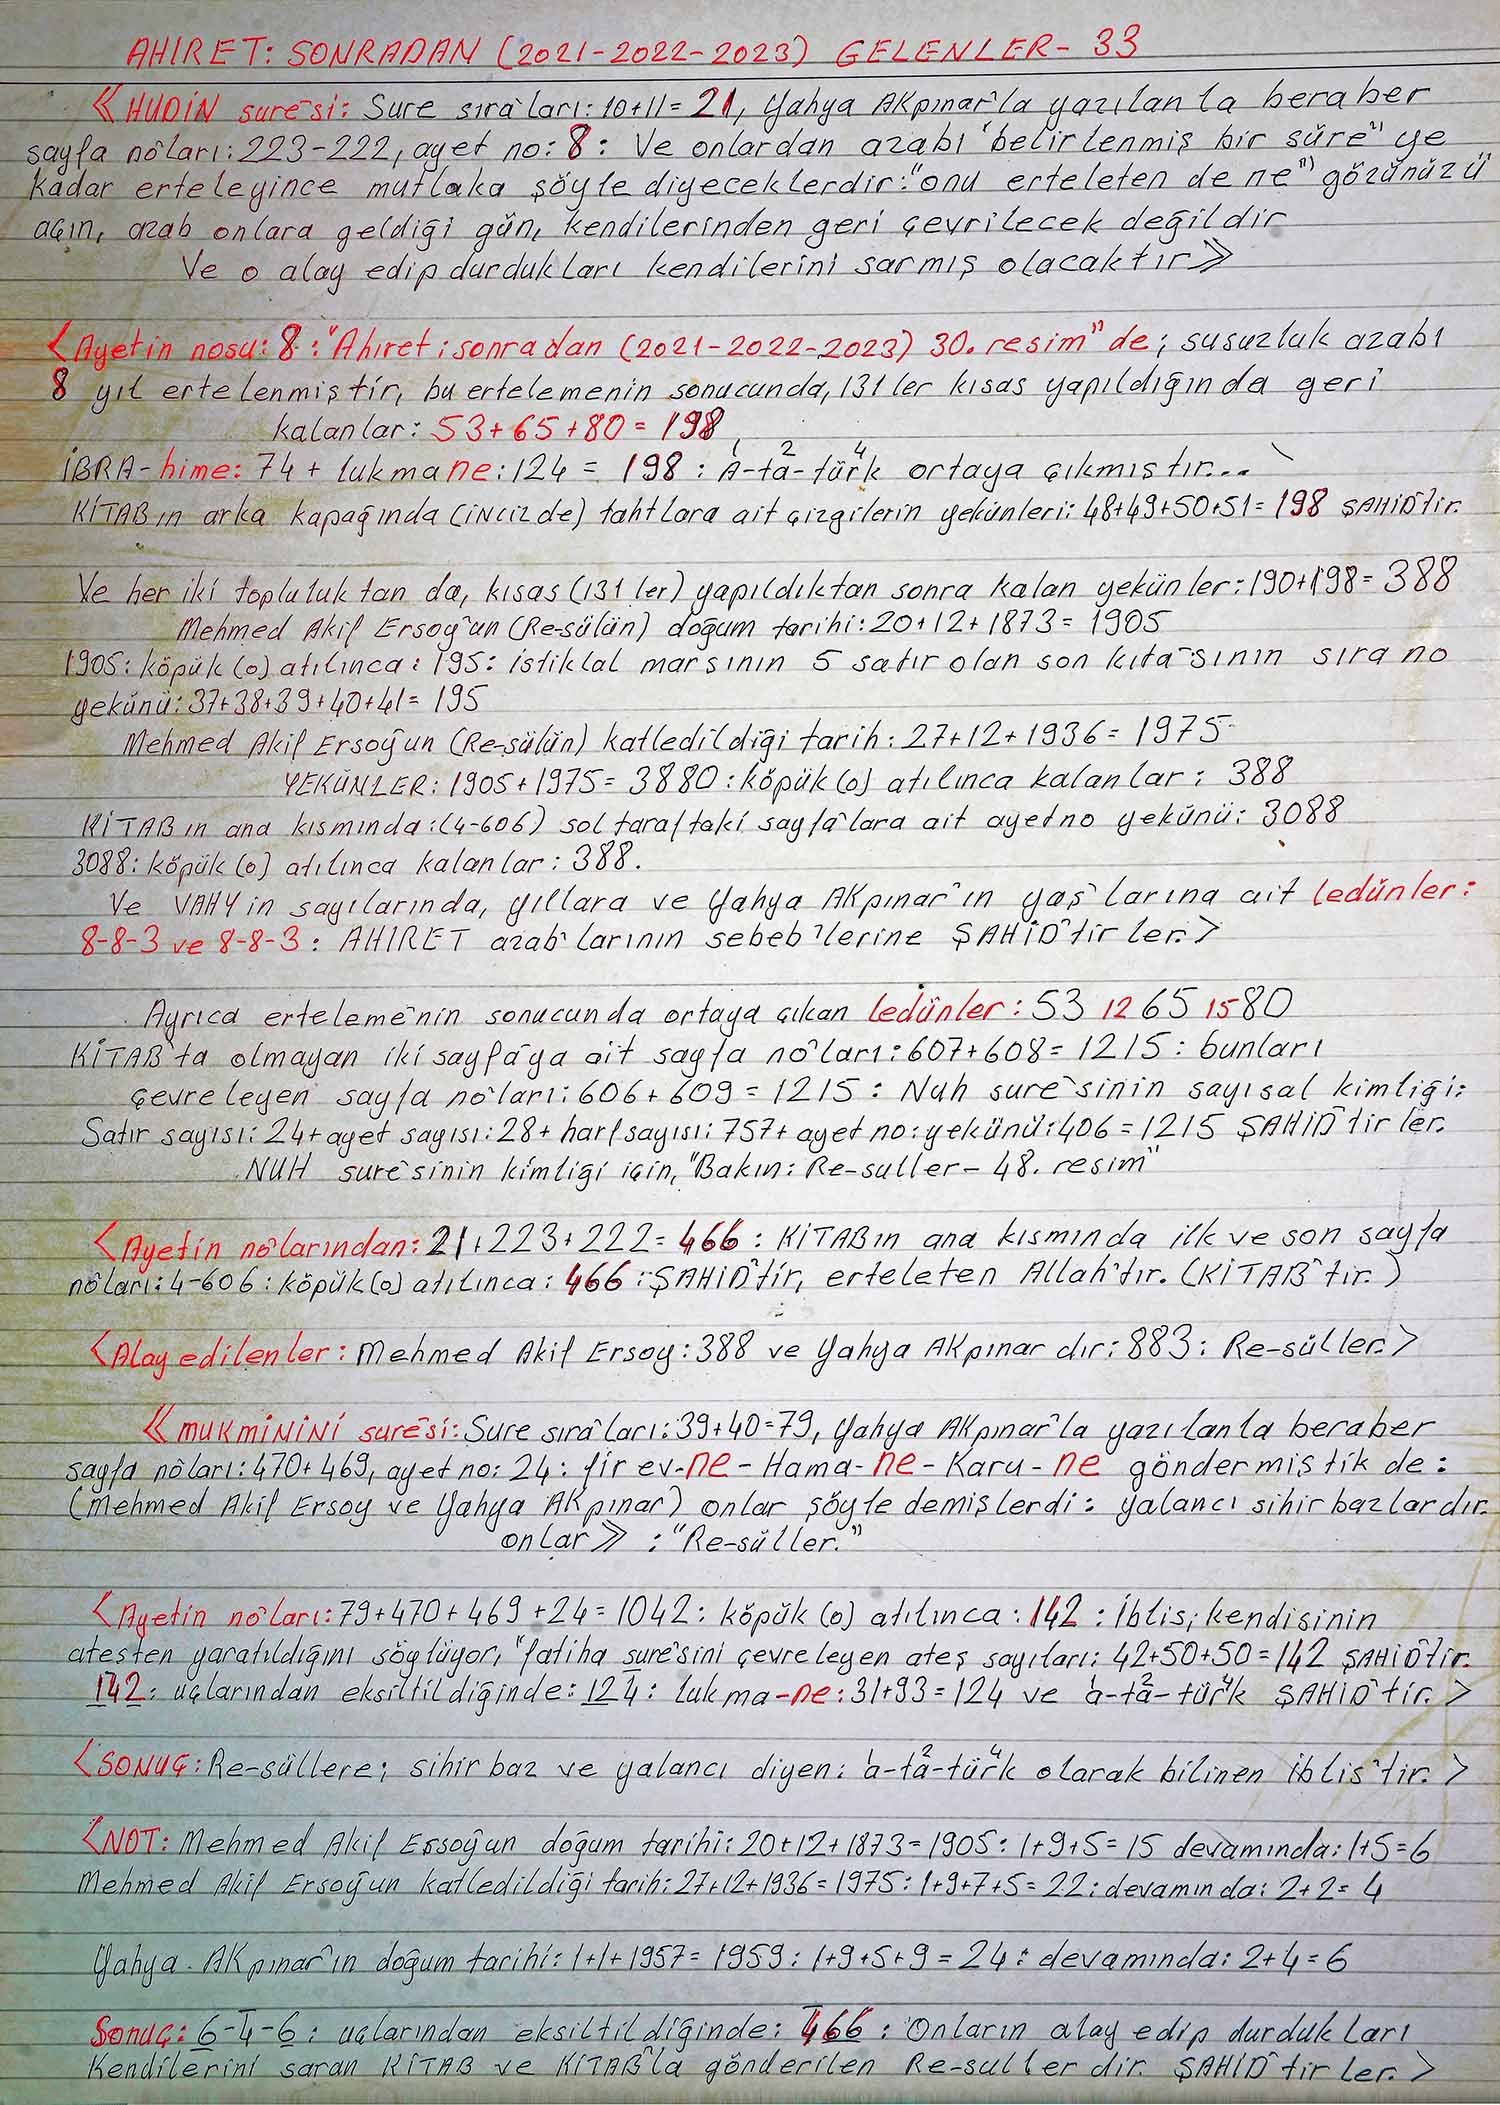 AHIRET: SONRADAN (2021-2022-2023) GELENLER- 33
《HUDİN suresi: Sure sıra'ları: 10+11= 21, Yahya AKpınar'la yazılanla beraber
sayfa no'ları: 223-222, ayet no: 8: Ve onlardan azabı "belirlenmiş bir süre" ye
kadar erteleyince mutlaka şöyle diyeceklerdir: "onu erteleten de ne" gözünüzü
açın, azab onlara geldiği gün, kendilerinden geri çevrilecek değildir
Ve o alay edip durdukları kendilerini sarmış olacaktır》
<Ayetin nosu: 8: "Ahiret: sonradan (2021-2022-2023) 30. resim" de; susuzluk azabı
8 yıl ertelenmiştir, bu ertelemenin sonucunda, 131 ler kısas yapıldığında geri
kalanlar: 53+65+80= 198
İBRA-hime: 74 + lukmane: 124 = 198 : 1 2 4 A-ta-türk ortaya çıkmıştır...
KİTABın arka kapağında (iNCİZde) tahtlara ait çizgilerin yekünleri: 48+49+50+51= 198 ŞAHİD'tir.
Ve her iki topluluktan da, kısas (131 ler) yapıldıktan sonra kalan yekünler: 190+198= 388
Mehmed Akif Ersoy'un (Re-sülün) doğum tarihi: 20+12+1873= 1905
1905: köpük (0) atılınca: 195: istiklal marsının 5 satır olan son kıta'sının sıra no
yekünü: 37+38+39+40+41= 195
Mehmed Akif Ersoy'un (Re-sülün) katledildiği tarih: 27+12+1936= 1975
YEKÜNLER: 1905+1975= 3880: köpük (0) atılınca kalanlar: 388
KİTABın ana kısmında: (4-606) sol taraftaki sayfa'lara ait ayetno yekünü: 3088
3088: köpük (0) atılınca kalanlar: 388.
Ve VAHYin sayılarında, yıllara ve Yahya AKpınar'ın yaş'larına ait ledünler:
8-8-3 ve 8-8-3: AHIRET azab'larının sebeb'lerine ŞAHİD'tirler.>
Ayrıca erteleme'nin sonucunda ortaya çıkan ledünler: 53 12 65 15 80
KİTAB'ta olmayan iki sayfa'ya ait sayfa no'ları: 607+608= 1215: bunları
çevreleyen sayfa no'ları: 606+609= 1215: Nuh sure'sinin sayısal kimliği:
Satır sayısı: 24+ayet sayısı: 28+ harf sayısı: 757+ ayet no: yekünü: 406= 1215 ŞAHİD'tirler.
NUH sure'sinin kimliği için, "Bakın: Re-suller- 48. resim"
<Ayetin no'larından: 21+223+222= 466: KİTABın ana kısmında ilk ve son sayfa
no'ları: 4-606: köpük (0) atılınca: 466: ŞAHİD'tir, erteleten Allah'tır. (KİTAB'tır.)
<Alay edilenler: Mehmed Akif Ersoy: 388 ve Yahya AKpınar dır: 883: Re-süller.>
《MUKMİNİNİ sure'si: Sure sıra'ları: 39+40=79, Yahya AKpınar'la yazılanla beraber
sayfa no'ları: 470+469, ayet no: 24: firev-ne-Hama-ne-Karu-ne göndermiştik de:
(Mehmed Akif Ersoy ve Yahya AKpınar) onlar şöyle demişlerdi: yalancı sihirbazlardır.
onlar》: "Re-süller."
<Ayetin no'ları: 79+470+469+24= 1042: köpük (0) atılınca: 142: İblis; kendisinin
ateşten yaratıldığını söylüyor, "fatiha sure'sini çevreleyen ateş sayıları: 42+50+50=142 ŞAHİD'tir.
142: uçlarından eksiltildiğinde: 124: lukma-ne: 31+93=124 ve 1 2 4 a-ta-türk ŞAHİD'tir.>
<SONUÇ: Re-süllere; sihirbaz ve yalancı diyen: 1 2 4 a-ta-türk olarak bilinen iblis'tir.>
<NOT: Mehmed Akif Ersoy'un doğum tarihi: 20+12+1873=1905: 1+9+5=15 devamında: 1+5=6
Mehmed Akif Ersoy'un katledildiği tarih: 27+12+1936=1975: 1+9+7+5=22: devamında: 2+2=4
Yahya AKpınar'ın doğum tarihi: 1+1+1957= 1959: 1+9+5+9=24: devamında: 2+4=6
Sonuç: 6-4-6: uçlarından eksiltildiğinde: 466: Onların alay edip durdukları
Kendilerini saran KİTAB ve KİTAB'la gönderilen Re-sullerdir. ŞAHİD'tirler.>